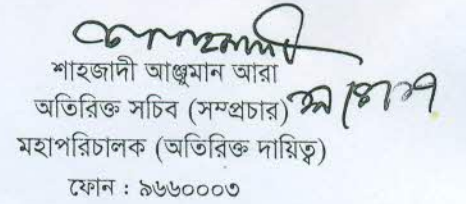 শাহজাদী আঞ্জুমান আরা
অতিরিক্ত সচিব (সম্প্রচার)
মহাপরিচালক (অতিরিক্ত দায়িত্ব)
ফোন : ৯৬৬০০০৩